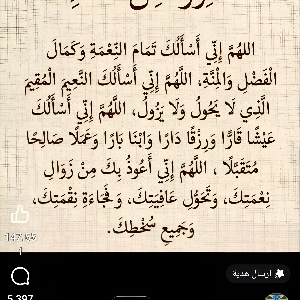 اللهُمَّ إِنِّي أَسْأَلُكَ تَمَامَ النِّعْمَةِ وَكَمَالَ
الْفَضْلِ وَالْمِنَّةِ، اللهُمَّ إِنِّي أَسْأَلُكَ النَّعِيمَ الْمُقِيمَ
الَّذِي لَا يَحُولُ وَلَا يَزُولُ، اللهُمَّ إِنِّي أَسْأَلُكَ
عَيْشًا قَارًّا وَرِزْقًا دَارًا وَابْنَا بَارًا وَعَمَلًا صَالِحًا
مُتَقَبَّلًا ، اللهُمَّ إِنِّي أَعُوذُ بِكَ مِنْ زَوَالِ
نِعْمَتِكَ، وَتَحَوُّلِ عَافِيَتِكَ، وَفُجَاءَةِ نِقْمَتِكَ،
وَجَمِيعِ سُخْطِكَ.
ارسال هدية
5,397